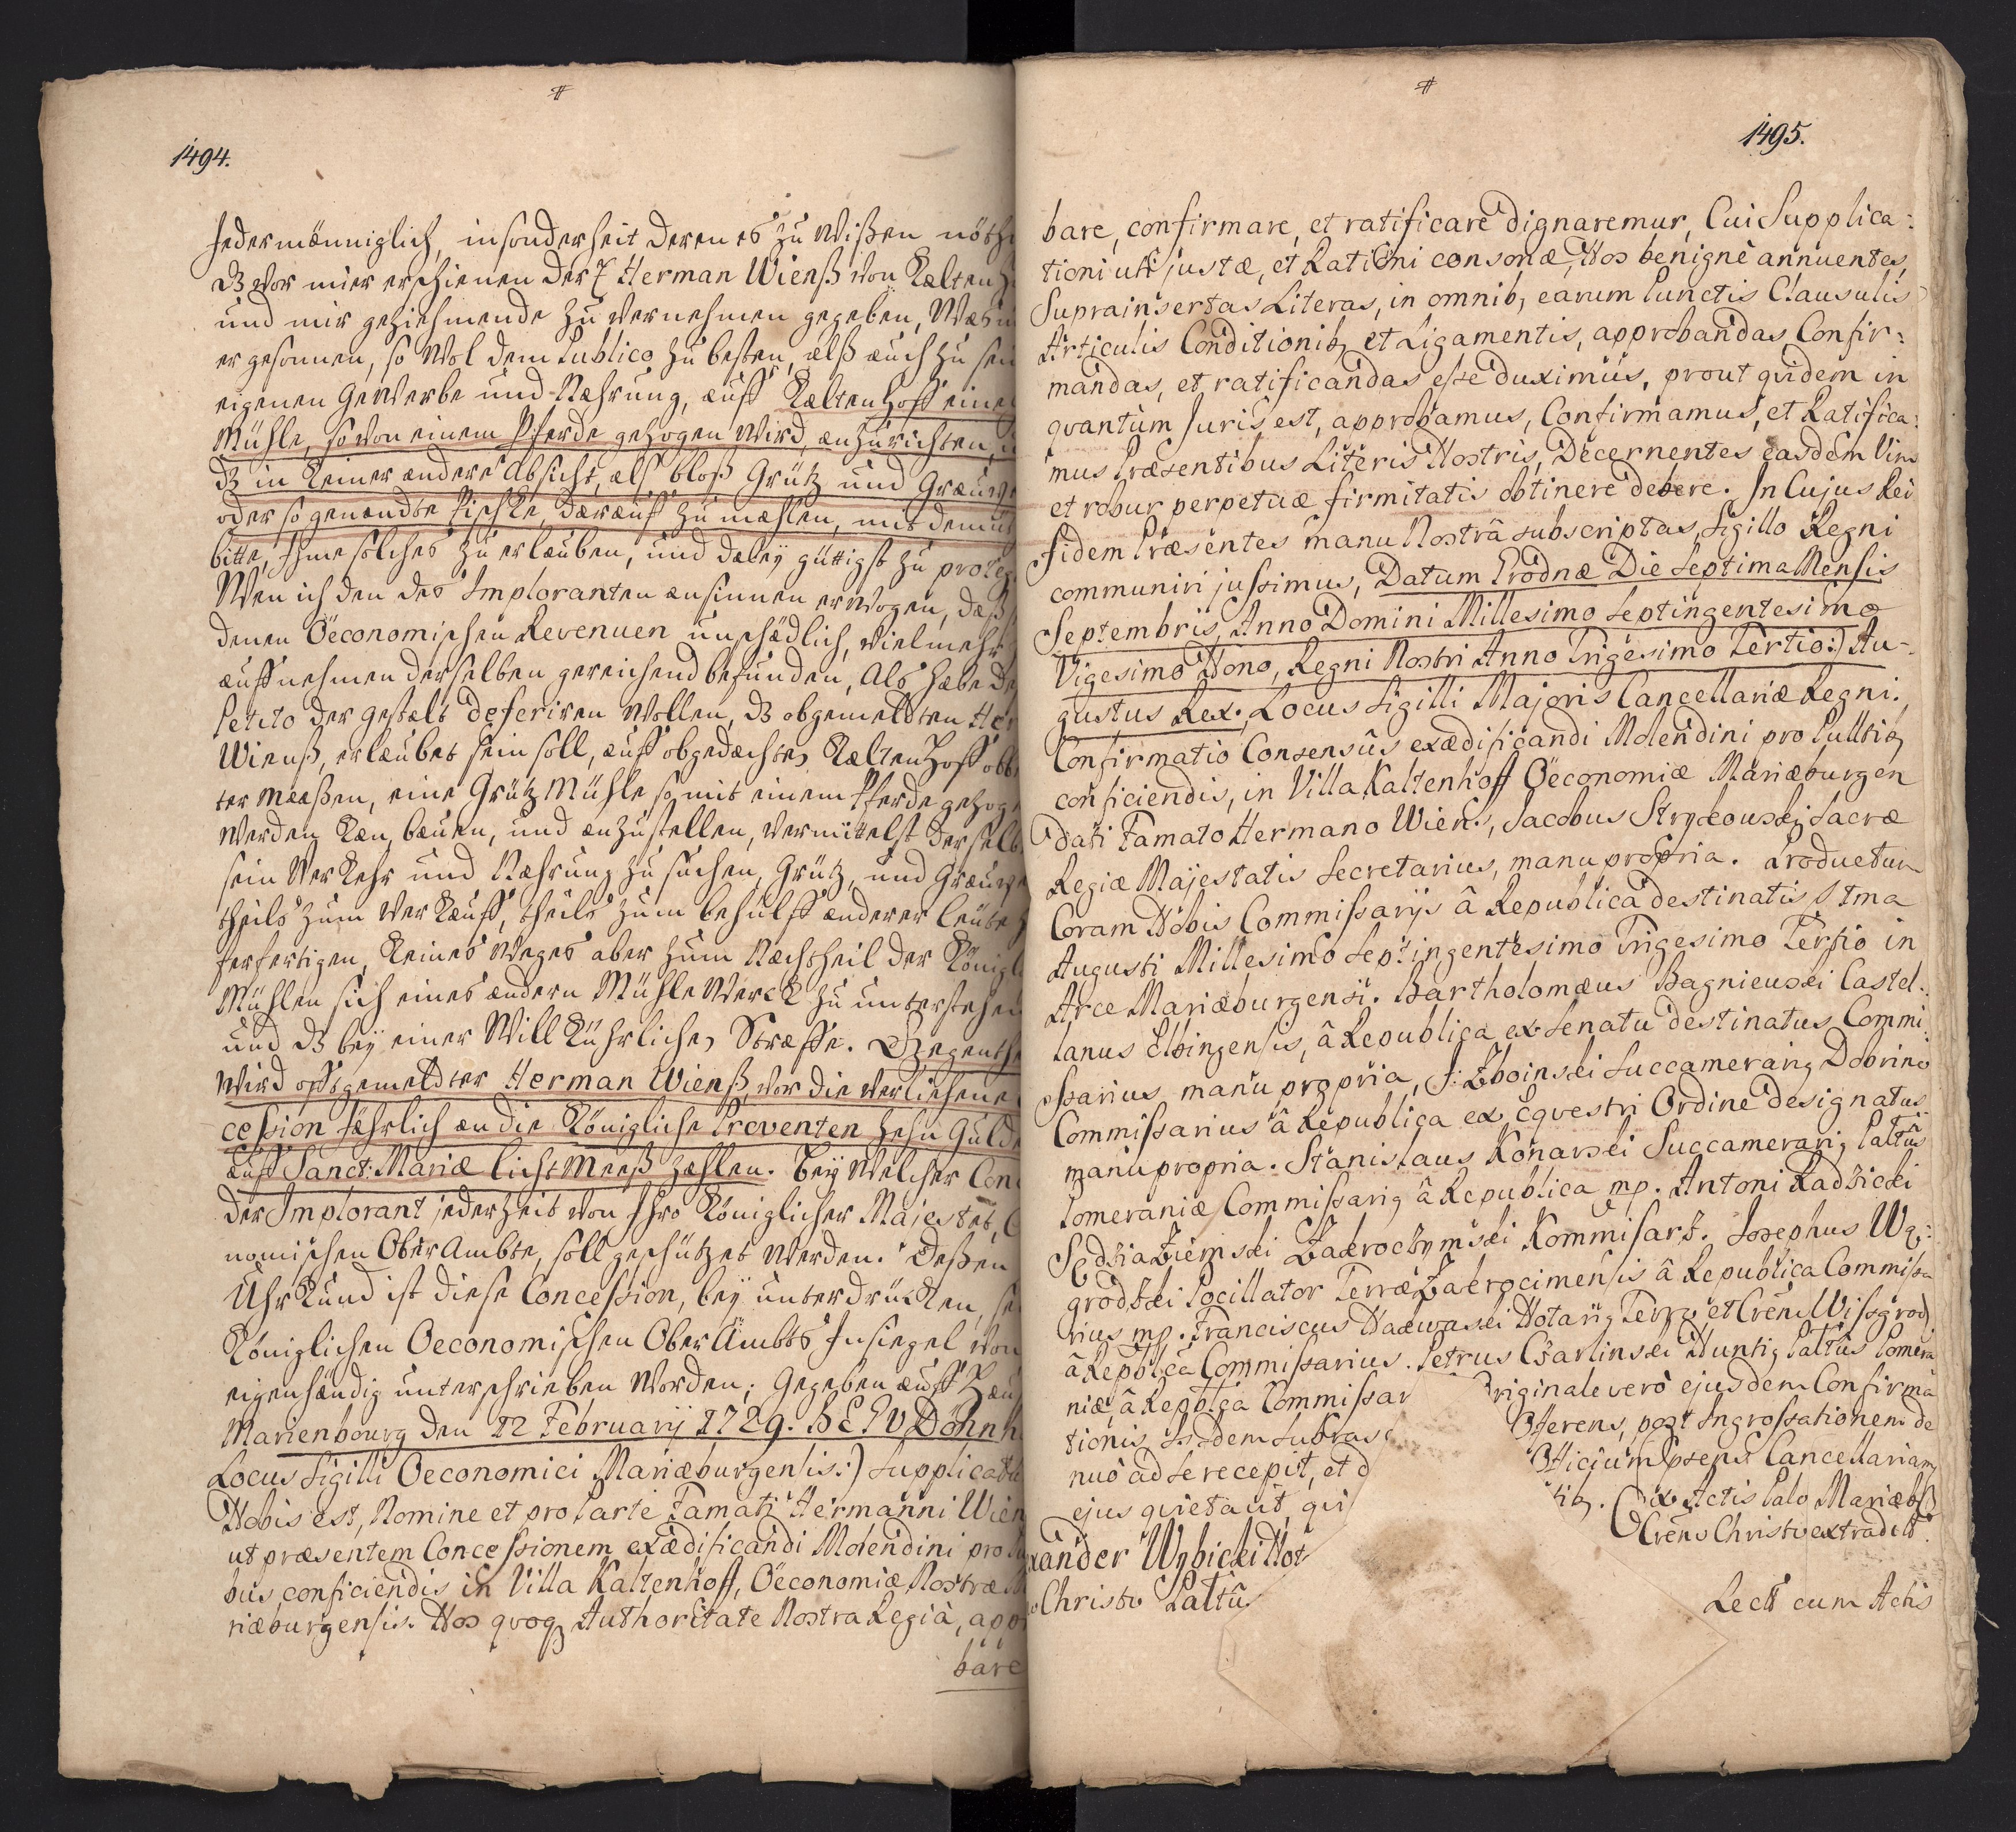 #
1494.
Jedermänniglich, insonderheit denen es zu wißen nöth
dz vor mier erschienen der Herman Wienß von Kaltenh
und mir geziehmende zu vernehmen gegeben, Waßm
er gesonnen, so wol dem Publico zu besten, alß auch zu sein
eigenen Gewerbe und Nahrung, auff Kaltenhoff eine
Mühle, so von einem Pferde gezogen wird, anzurichten,
dz in keiner andere Absicht, alß bloß Grütz und Graup
oder so genandte darauf zu mahlen, mit demüt
bitte, Ihme solches zu erlauben, und dabeÿ güttigst zu proteg
Wen ich den des Imploranten ansinnen erwogen, daß
denen Oeconomischen Revenuen unschädlich, vielmehr
auffnehmen derselben gereichend befunden, Als habe de
Petito der gestalt deferiren wollen, dz obgemeldten Her
Wienß, erlaubet sein soll, auff obgedachten Kaltenhoff obb
ter maaßen, eine Grütz Mühle so mit einem Pferde gezoge
werden kan, bauen, und anzustellen, vermittelst derselb
sein Verkehr und Nahrung zu suchen, Grütz, und Graup
theils zum verkauff, theils zum behülff anderer leute z
ferfertigen, keines weges aber zum Nachtheil der Königl
Mühlen sich eines andern Mühlewerck zu unterstehen
und dz beÿ einer Willkührlichen Straffe. Dagegen
wird offtgemeldter Herman Wienß, vor die verliehene
cession Jährlich an die Königliche Proventen zehn Gülde
auff Sanct: Mariæ lichtmeeß zahlen. Beÿ welcher Con
der Implorant jederzeit von Ihro Königlicher Majestet,
nomischen Ober Ambte, soll geschützet werden. Deßen
Uhrkund ist diese Concession, beÿ unterdrückten, se
Königlichen Oeconomischen Ober Ambts Insiegel von
eigenhändig unterschrieben worden; Gegeben auff Hau
Marienbourg den 12 Februarij 1729. Dönh
Locus Sigilli Oeconomici Mariæburgensis:) Supplicatu
Nobis est, Nomine et pro Parte Famati Hermanni Wien
ut præsentem Concessionem exædificandi Molendini pro
bus conficiendis in Villa Kaltenhoff, Oeconomiæ Nostræ
riæburgensis. Nos quoq Authoritate Nostra Regià, appr
bare
#
1495.
bare, confirmare, et ratificare dignaremur, Cui Supplica:
tioni uti justæ, et Rationi consonæ, Nos benigne annuentes,
Suprainsertas Literas, in omnib, earum Punctis Clausulis
Articulis Conditionib, et Ligamentis, approbandas, Confir:
mandas, et ratificandas esse duximus, prout quidem in
quantum Juris est, approbamus, Confirmamus, et Ratifica:
mus Præsentibus Literis Nostris, Decernentes easdem Vim
et robur perpetuæ firmitatis obtinere debere. In Cujus Rei
fidem Præsentes manu Nostrâ subscriptas, Sigillo Regni
communiri jussimus, Datum Grodnæ Die Septima Mensis
Septembris, Anno Domini Millesimo Septingentesimo
Vigesimo Nono, Regni Nostri Anno Trigesimo Tertio:) Au-
gustus Rex. Locus Sigilli Majoris Cancellariæ Regni.
Confirmatio Consensûs exædificandi Molendini pro Pultib,
conficiendis, in Villa Kaltenhoff Oeconomiæ Mariæburgen
Dati Famato Hermano Wiens, Jacobus Strykowski Sacræ
Regiæ Majestatis Secretarius, manu propria. Productum
Coram Nobis Commissarijs â Republica destinatis
Augusti Millesimo Septingentesimo Trigesimo Tertio in
Arce Mariæburgensi. Bartholomæus Bagniewski Castel.
lanus Elbingensis, â Republica ex Senatu destinatus Commi:
ssarius manu propria, J: Zboinski Succamerarig Dobrino
Commissarius â Republica ex Equestri Ordine designatus
manu propria. Stanislaus Konarski Succamerarig Paltûs
Pomeraniæ Commissarig â Republica mp. Antoni Radzicki
Sędzia Ziemski Zakroczymski Kommisarz. Josephus Wę:
grodzki Pocillator Terræ Zakrocimensis â Republica Commissa
rius mp. Franciscus Nakwaski Notarig Terræ et Crens Wissgrod
â Republica Commissarius. Petrus Czarlinski Nuntig Paltûs Pomera
niæ â Republca Commissar riginale verò ejusdem Confirma
tionis Isdem fferens, post Ingrossationem de
nuò ad se recepit, et d fficium psens Cancellariamq
ejus quietavit, qui tib. Ex Actis Palo Mariæb
xander Wybicki Not Crens Christb extradit.
Christb Paltû
Lect cum Actis